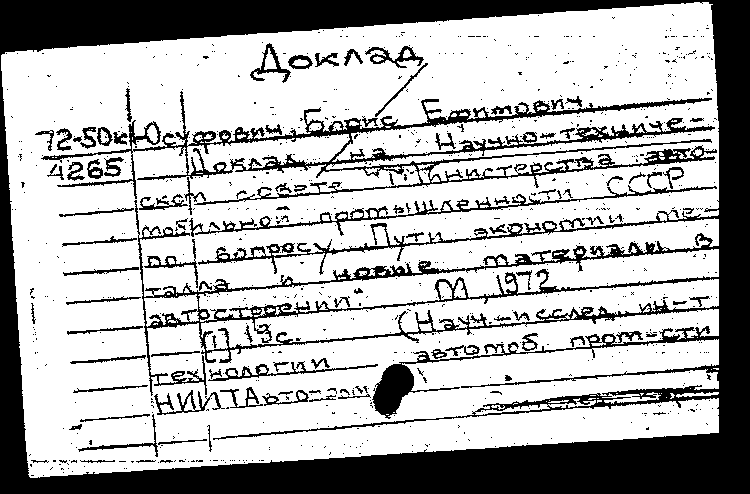 Доклад
72-50к Юсуфович, Борис Ефимович.
4265 Доклад на Научно-техниче-
ском совете Министерства авто-
мобильной промышленности СССР
по вопросу „Пути экономии ме-
талла и новые материалы в
автостроении". М, 1972
[1], 19 с. (Науч.-исслед. ин-т
технологии автомоб. пром-сти
НИИТАвтопром